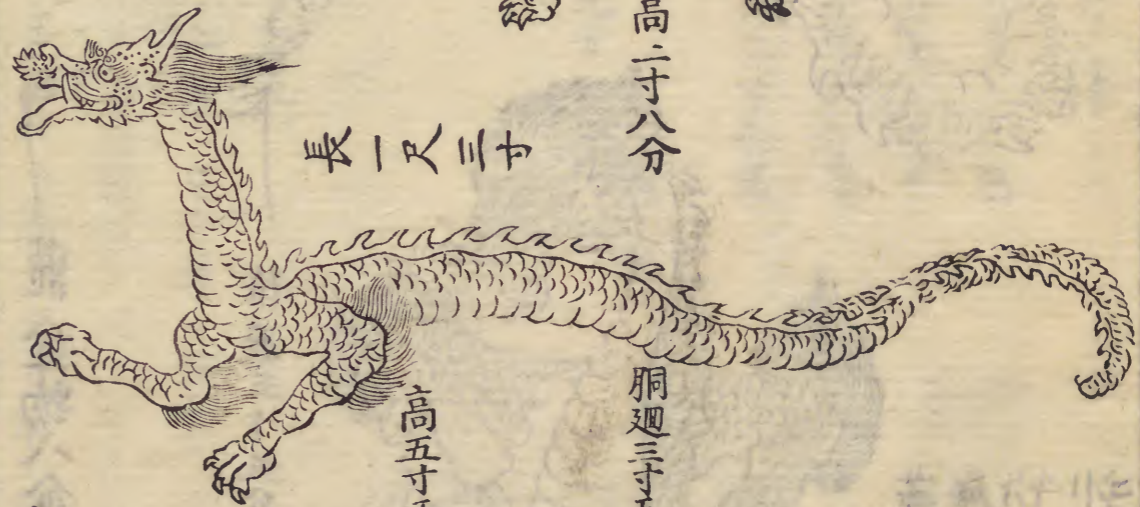 高二寸八分
長一尺三寸
胴廻三寸五
高五寸五